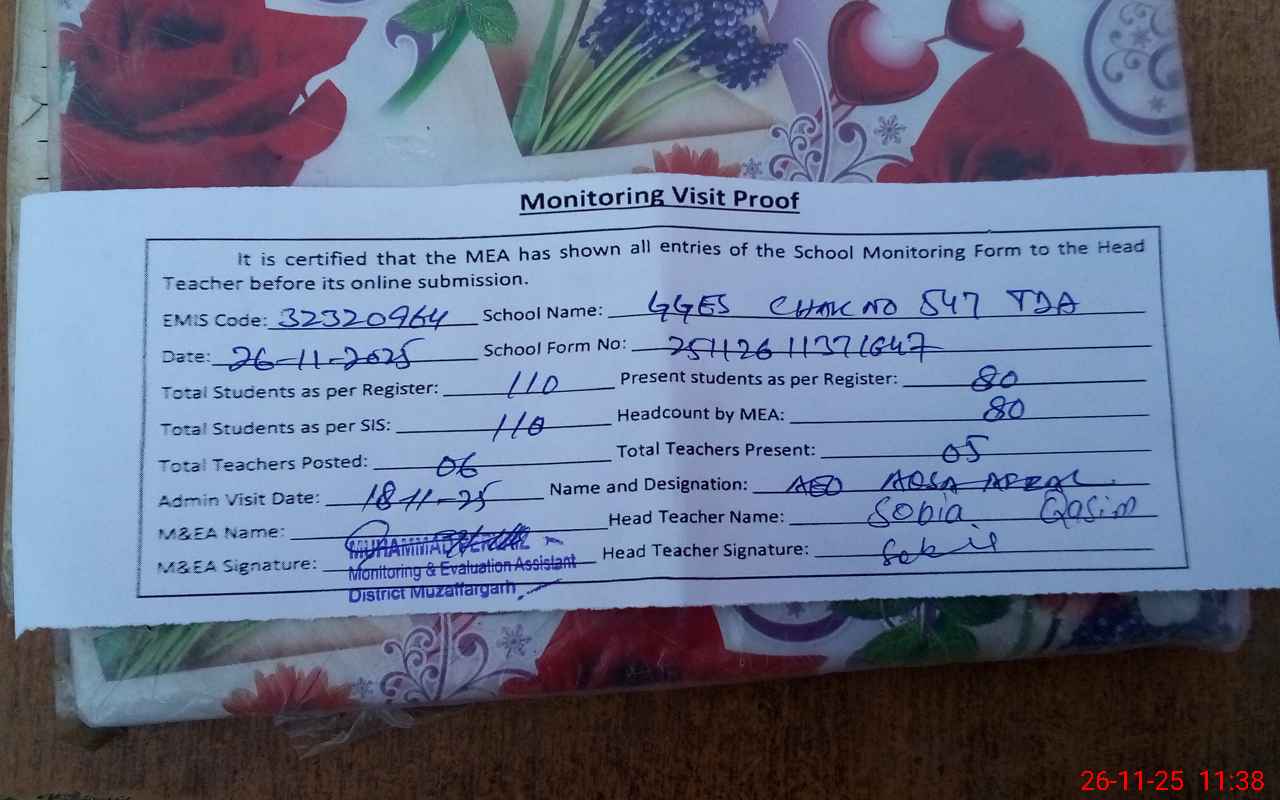 Monitoring Visit Proof
It is certified that the MEA has shown all entries of the School Monitoring Form to the Head
Teacher before its online submission.
EMIS Code: 32320964 School Name: GGES CHAK NO 547 TDA
Date: 26-11-2025 School Form No: 25112611371647
Total Students as per Register: 110 Present students as per Register: 80
Total Students as per SIS: 110 Headcount by MEA: 80
Total Teachers Posted: 06 Total Teachers Present: 05
Admin Visit Date: 18-11-25 Name and Designation: AEO AQSA AFZAL.
M&EA Name: Head Teacher Name: Sobia Qasim
MUHAMMAD
M&EA Signature: Head Teacher Signature:
Monitoring & Evaluation Assistant
District Muzaffargarh
26-11-25 11:38